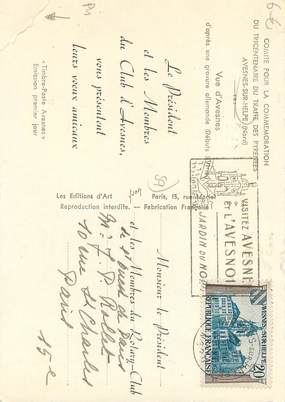 COMITÉ POUR LA COMMÉMORATION
DU TRICENTENAIRE DU TRAITÉ DES PYRÉNÉES
AVESNES-SUR-HELPE (Nord)
Vue d'Avesnes
d'après une gravure allemande
Le Président
et les Membres
du Club d'Avesnes,
vous présentent
leurs voeux amicaux
« Timbre-Poste Avesnes »
Emission premier jour
Les Editions d'Art
Paris, 15, rue
Reproduction interdite. — Fabrication Française
VISITEZ AVESNES
ET L'AVESNOIS
JARDIN DU NORD
Monsieur le Président
et des Membres du Rotary-Club
de
Paris
10 rue St Charles
Paris
15e
AVESNES-SUR-HELPE
20F
REPUBLIQUE FRANÇAISE